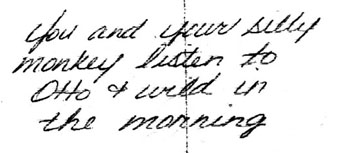 you and your silly
monkey listen to
Otto & wild in
the morning